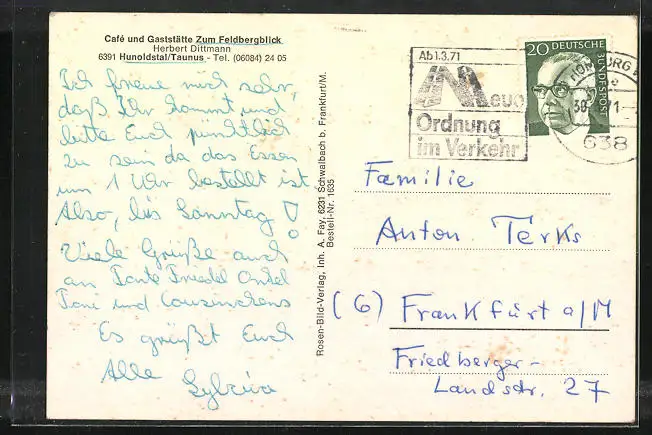 Café und Gaststätte Zum Feldbergblick
Herbert Dittmann
6391 Hunoldstal/Taunus - Tel. (06084) 24 05
Ich freue mich sehr,
daß Ihr kommt und
bitte Euch pünktlich
zu sein da das Essen
um 1 Uhr bestellt ist
Also, bis Sonntag!
Viele Grüße auch
an Tante Friedel Onkel
Toni und Cousinchens
Es grüßt Euch
Alle
Sylvia
Rosen-Bild-Verlag, Inh. A. Fay, 6231 Schwalbach b. Frankfurt/M.
Bestell-Nr. 1635
Ab 1.3.71
Neue
Ordnung
im Verkehr
20 DEUTSCHE
BUNDESPOST
638
Familie
Anton Terks
(6) Frankfurt a/M
Friedberger-
Landstr. 27